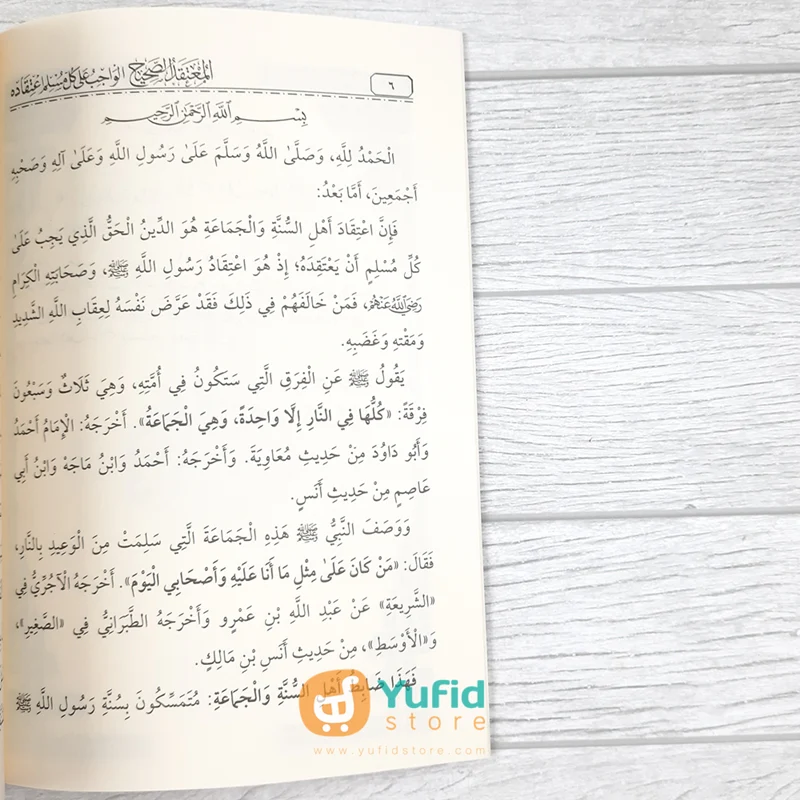 ٦
المعتقد الصحيح الواجب على كل مسلم اعتقاده
بِسْمِ ٱللَّهِ ٱلرَّحْمَٰنِ ٱلرَّحِيمِ
الْحَمْدُ لِلَّهِ، وَصَلَّىٰ اللَّهُ وَسَلَّمَ عَلَىٰ رَسُولِ اللَّهِ وَعَلَىٰ آلِهِ وَصَحْبِهِ
أَجْمَعِينَ، أَمَّا بَعْدُ:
فَإِنَّ اعْتِقَادَ أَهْلِ السُّنَّةِ وَالْجَمَاعَةِ هُوَ الدِّينُ الْحَقُّ الَّذِي يَجِبُ عَلَىٰ
كُلِّ مُسْلِمٍ أَنْ يَعْتَقِدَهُ؛ إِذْ هُوَ اعْتِقَادُ رَسُولِ اللَّهِ ﷺ، وَصَحَابَتِهِ الْكِرَامِ
رَضِيَ اللَّهُ عَنْهُمْ، فَمَنْ خَالَفَهُمْ فِي ذَلِكَ فَقَدْ عَرَّضَ نَفْسَهُ لِعِقَابِ اللَّهِ الشَّدِيدِ
وَمَقْتِهِ وَغَضَبِهِ.
يَقُولُ ﷺ عَنِ الْفِرَقِ الَّتِي سَتَكُونُ فِي أُمَّتِهِ، وَهِيَ ثَلَاثٌ وَسَبْعُونَ
فِرْقَةً: «كُلُّهَا فِي النَّارِ إِلَّا وَاحِدَةً، وَهِيَ الْجَمَاعَةُ». أَخْرَجَهُ: الْإِمَامُ أَحْمَدُ
وَأَبُو دَاوُدَ مِنْ حَدِيثِ مُعَاوِيَةَ. وَأَخْرَجَهُ: أَحْمَدُ وَابْنُ مَاجَهْ وَابْنُ أَبِي
عَاصِمٍ مِنْ حَدِيثِ أَنَسٍ.
وَوَصَفَ النَّبِيُّ ﷺ هَذِهِ الْجَمَاعَةَ الَّتِي سَلِمَتْ مِنَ الْوَعِيدِ بِالنَّارِ،
فَقَالَ: «مَنْ كَانَ عَلَىٰ مِثْلِ مَا أَنَا عَلَيْهِ وَأَصْحَابِي الْيَوْمَ». أَخْرَجَهُ الْآجُرِّيُّ فِي
«الشَّرِيعَةِ» عَنْ عَبْدِ اللَّهِ بْنِ عَمْرٍو وَأَخْرَجَهُ الطَّبَرَانِيُّ فِي «الصَّغِيرِ»،
وَ«الْأَوْسَطِ»، مِنْ حَدِيثِ أَنَسِ بْنِ مَالِكٍ.
فَهَذَا ضَابِطُ أَهْلِ السُّنَّةِ وَالْجَمَاعَةِ: مُتَمَسِّكُونَ بِسُنَّةِ رَسُولِ اللَّهِ ﷺ
Yufid
store
www.yufidstore.com